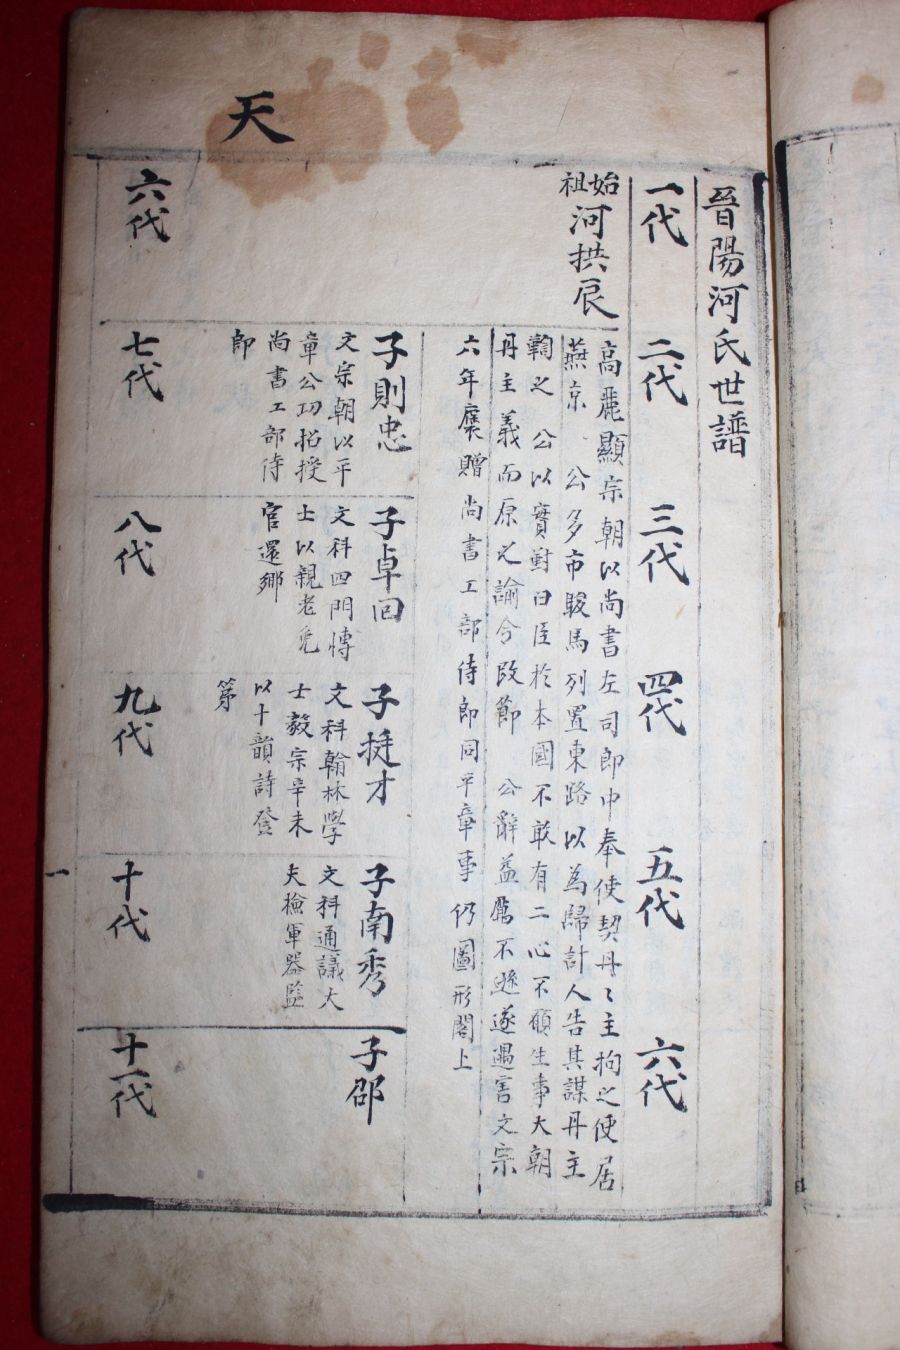 天
晉陽河氏世譜
一代
二代
三代
四代
五代
六代
始祖
河拱辰
高麗顯宗朝以尚書左司郎中奉使契丹〻主拘之使居
燕京 公多市駿馬列置東路以為歸計人告其謀丹主
鞫之 公以實對曰臣於本國不敢有二心不願生事大朝
丹主義而原之諭令改節 公辭益厲不遜遂遇害文宗
六年褒贈尚書工部侍郎同平章事仍圖形閣上
子則忠
文宗朝以平
章公功招授
尚書工部侍
郎
子卓回
文科四門博
士以親老免
官還鄉
子挺才
文科翰林學
士毅宗辛未
以十韻詩登
第
子南秀
文科通議大
夫檢軍器監
子邵
六代
七代
八代
九代
十代
十一代
一